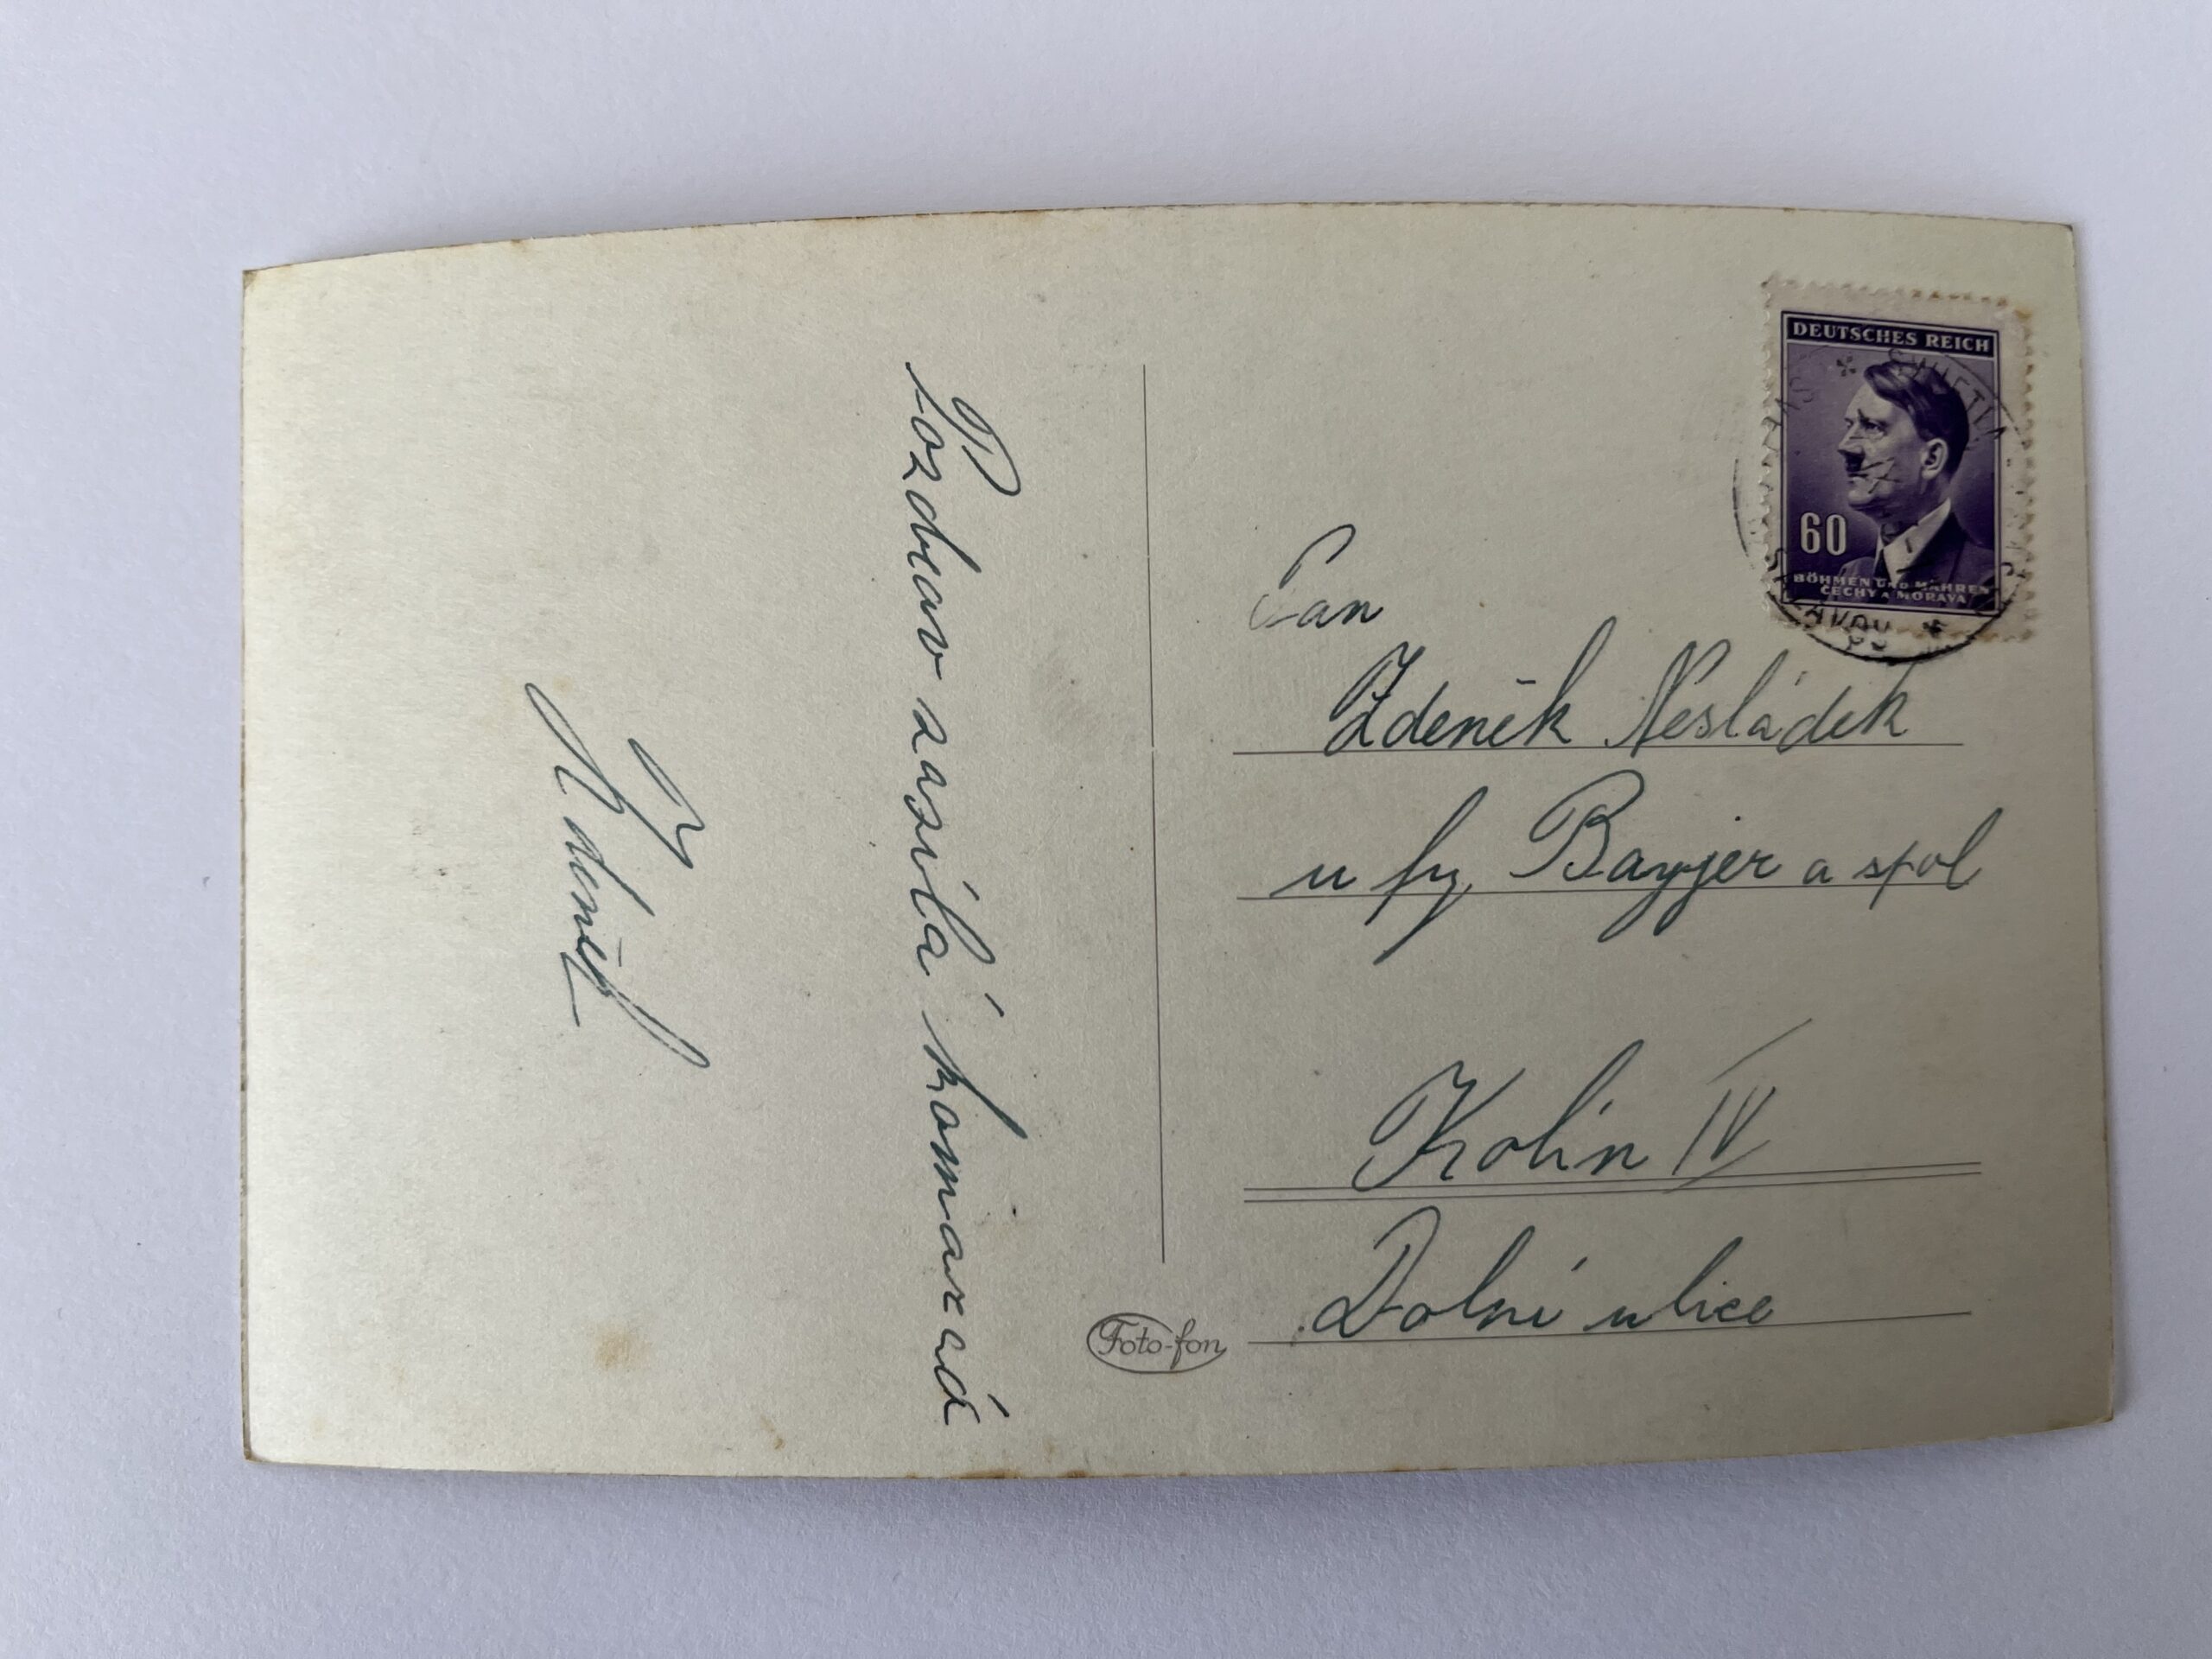 Pozdrav zasílá kamarád
Zdeněk
DEUTSCHES REICH
60
BÖHMEN UND MÄHREN
ČECHY A MORAVA
Pan
Zdeněk Nesládek
u fy, Bayjer a spol
Kolín IV
Dolní ulice
Foto-fon